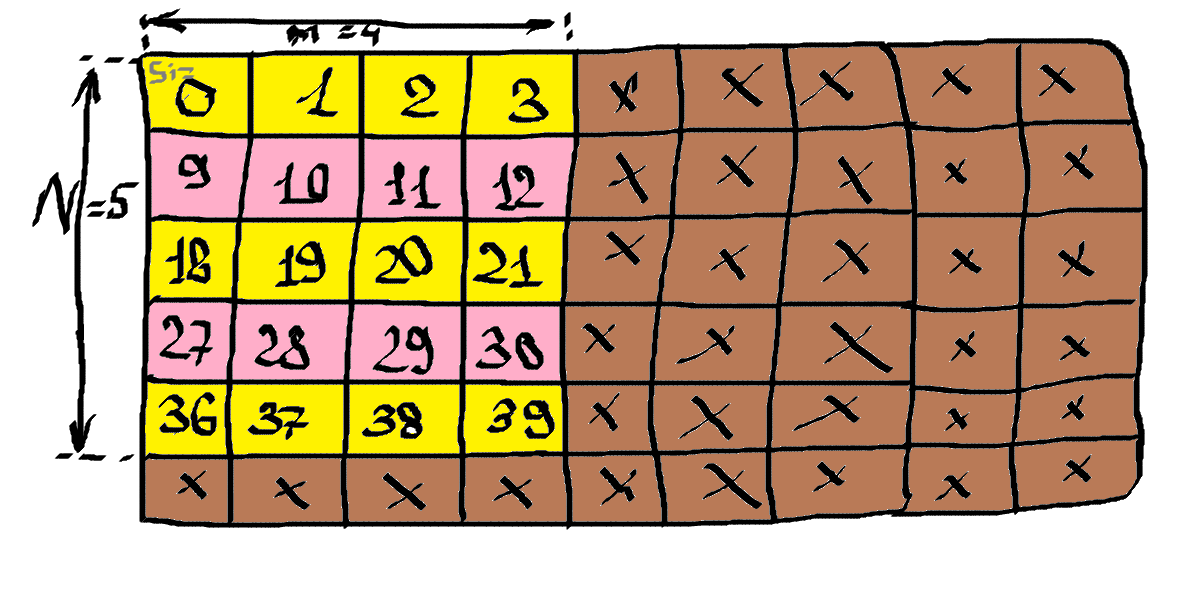 m = 4
Siz
0 1 2 3 x x x x x
9 10 11 12 x x x x x
N=5
18 19 20 21 x x x x x
27 28 29 30 x x x x x
36 37 38 39 x x x x x
x x x x x x x x x